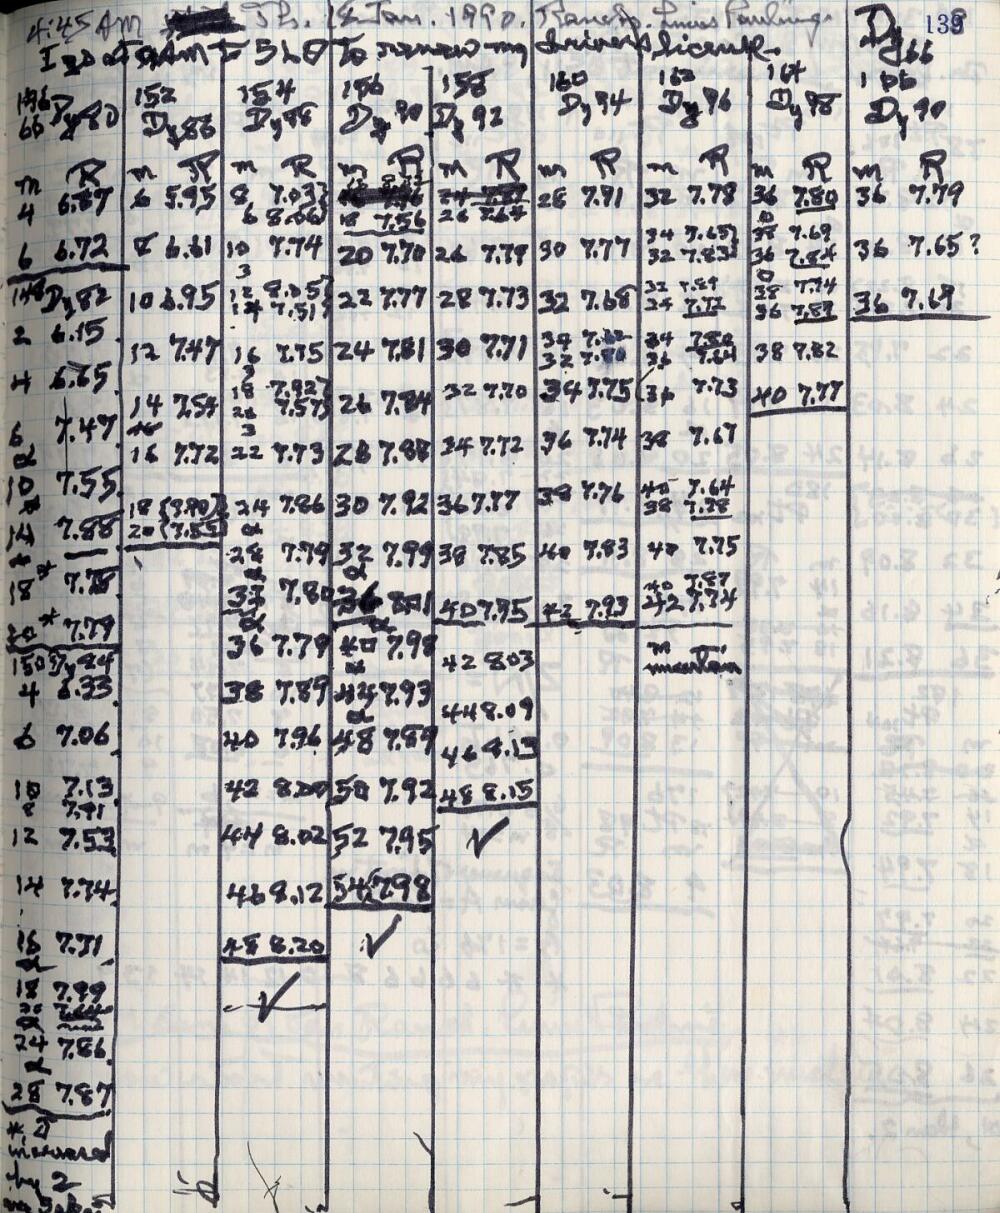 4:45 AM Th. 18 Jan. 1990. Ranch. Linus Pauling. 139
I go at 8 AM to SLO to renew my driver's license. Dy 66
146 66 Dy 80
m R
4 6.87
6 6.72
148 Dy 82
2 6.15
4 6.65
6 7.47
α
10 7.55
α
14 7.88
18* 7.78
20* 7.79
150 Dy 84
4 6.33
6 7.06
10 7.13
8 7.91
12 7.53
14 7.74
16 7.71
α
18 7.99
α
24 7.86
α
28 7.87
* J
increased
by 2
152
Dy 86
m R
6 5.95
8 6.61
10 6.95
12 7.47
14 7.54
16 7.72
18 (7.70)
20 (7.55)
154
Dy 88
m R
8 7.03}
6 8.06}
10 7.74
3
12 8.05}
14 7.51}
16 7.75
3
18 7.92}
20 7.57}
3
22 7.73
24 7.86
α
28 7.79
α
32 7.80
α
36 7.79
38 7.89
40 7.96
42 8.00
44 8.02
46 8.12
48 8.20
✓
156
Dy 90
m R
18 7.56
20 7.70
22 7.77
24 7.81
26 7.84
28 7.88
30 7.92
32 7.99
α
36 8.01
α
40 7.98
α
44 7.93
α
48 7.89
50 7.92
52 7.95
54 7.98
✓
158
Dy 92
m R
26 7.79
28 7.73
30 7.71
32 7.70
34 7.72
36 7.77
38 7.85
40 7.95
42 8.03
44 8.09
46 8.13
48 8.15
✓
160
Dy 94
m R
28 7.91
30 7.77
32 7.68
34 7.62
32 7.80
34 7.75
36 7.74
38 7.76
40 7.83
42 7.93
162
Dy 96
m R
32 7.78
34 7.65}
32 7.83}
32 7.89
34 7.72
34 7.80
36 7.64
36 7.73
38 7.67
40 7.64
38 7.78
40 7.75
40 7.87
42 7.74
m
uncertain
164
Dy 98
m R
36 7.80
38 7.69
36 7.84
38 7.74
36 7.89
38 7.82
40 7.77
166
Dy 90
m R
36 7.79
36 7.65?
36 7.69